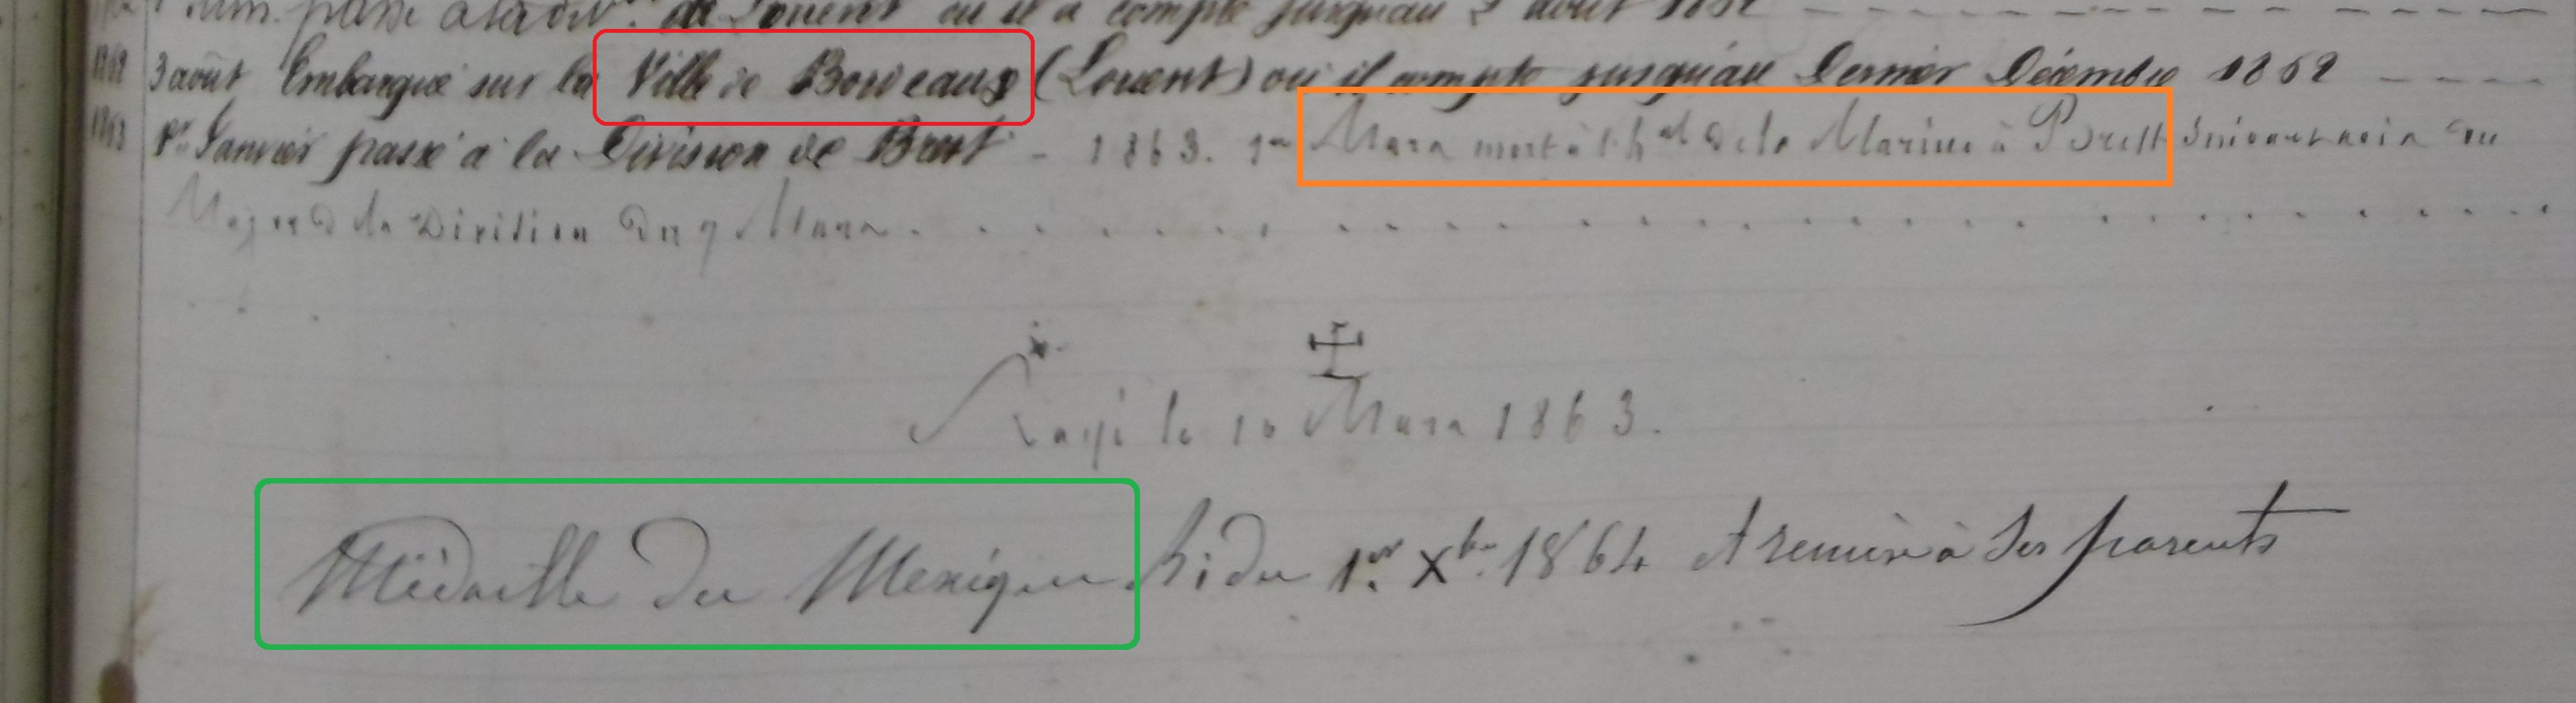 passé à la div. de Lorient où il a compté jusqu'au 2 août 1862
1862 3 août Embarqué sur la Ville de Bordeaux (Lorient) où il compte jusqu'au Dernier Décembre 1862
1863 1er Janvier passé à la Division de Brest - 1863. 1er Mars mort à l'hal de la Marine à Brest suivant avis du
Major de la Division du 9 Mars
Rayé le 10 Mars 1863.
Médaille du Mexique Don du 1er Xbre 1864 Et remise à ses parents